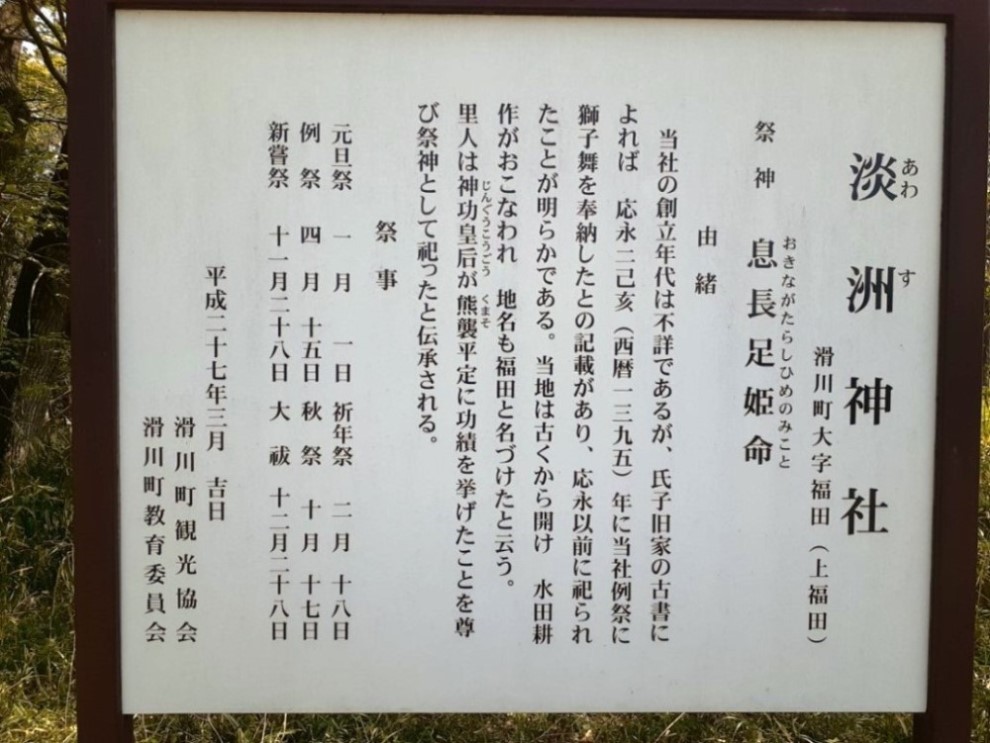 淡洲神社
あわす
滑川町大字福田(上福田)
祭神 息長足姫命
おきながたらしひめのみこと
由緒
当社の創立年代は不詳であるが、氏子旧家の古書に
よれば 応永二己亥(西暦一三九五)年に当社例祭に
獅子舞を奉納したとの記載があり、応永以前に祀られ
たことが明らかである。当地は古くから開け 水田耕
作がおこなわれ 地名も福田と名づけたと云う。
里人は神功皇后が熊襲平定に功績を挙げたことを尊
じんぐうこうごう くまそ
び祭神として祀ったと伝承される。
祭事
元旦祭 一月 一日 祈年祭 二月 十八日
例祭 四月 十五日 秋祭 十月 十七日
新嘗祭 十一月二十八日 大祓 十二月二十八日
平成二十七年三月 吉日
滑川町観光協会
滑川町教育委員会